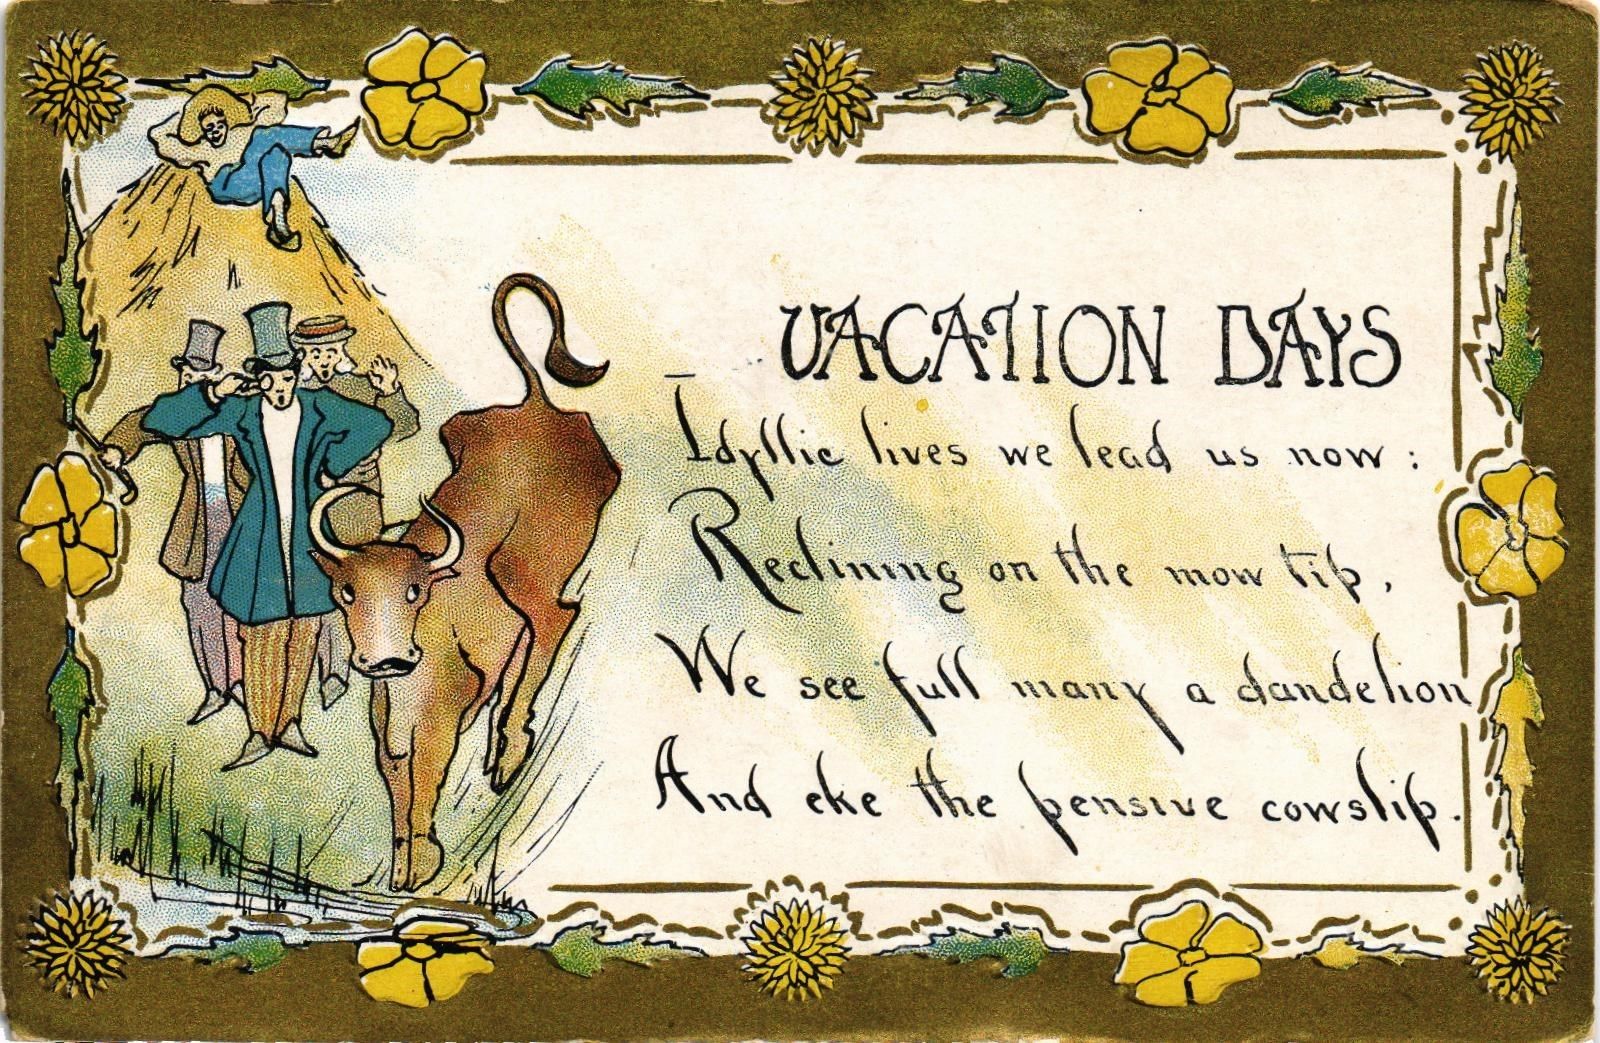 VACATION DAYS
Idyllic lives we lead us now:
Reclining on the mow tip,
We see full many a dandelion
And eke the pensive cowslip.